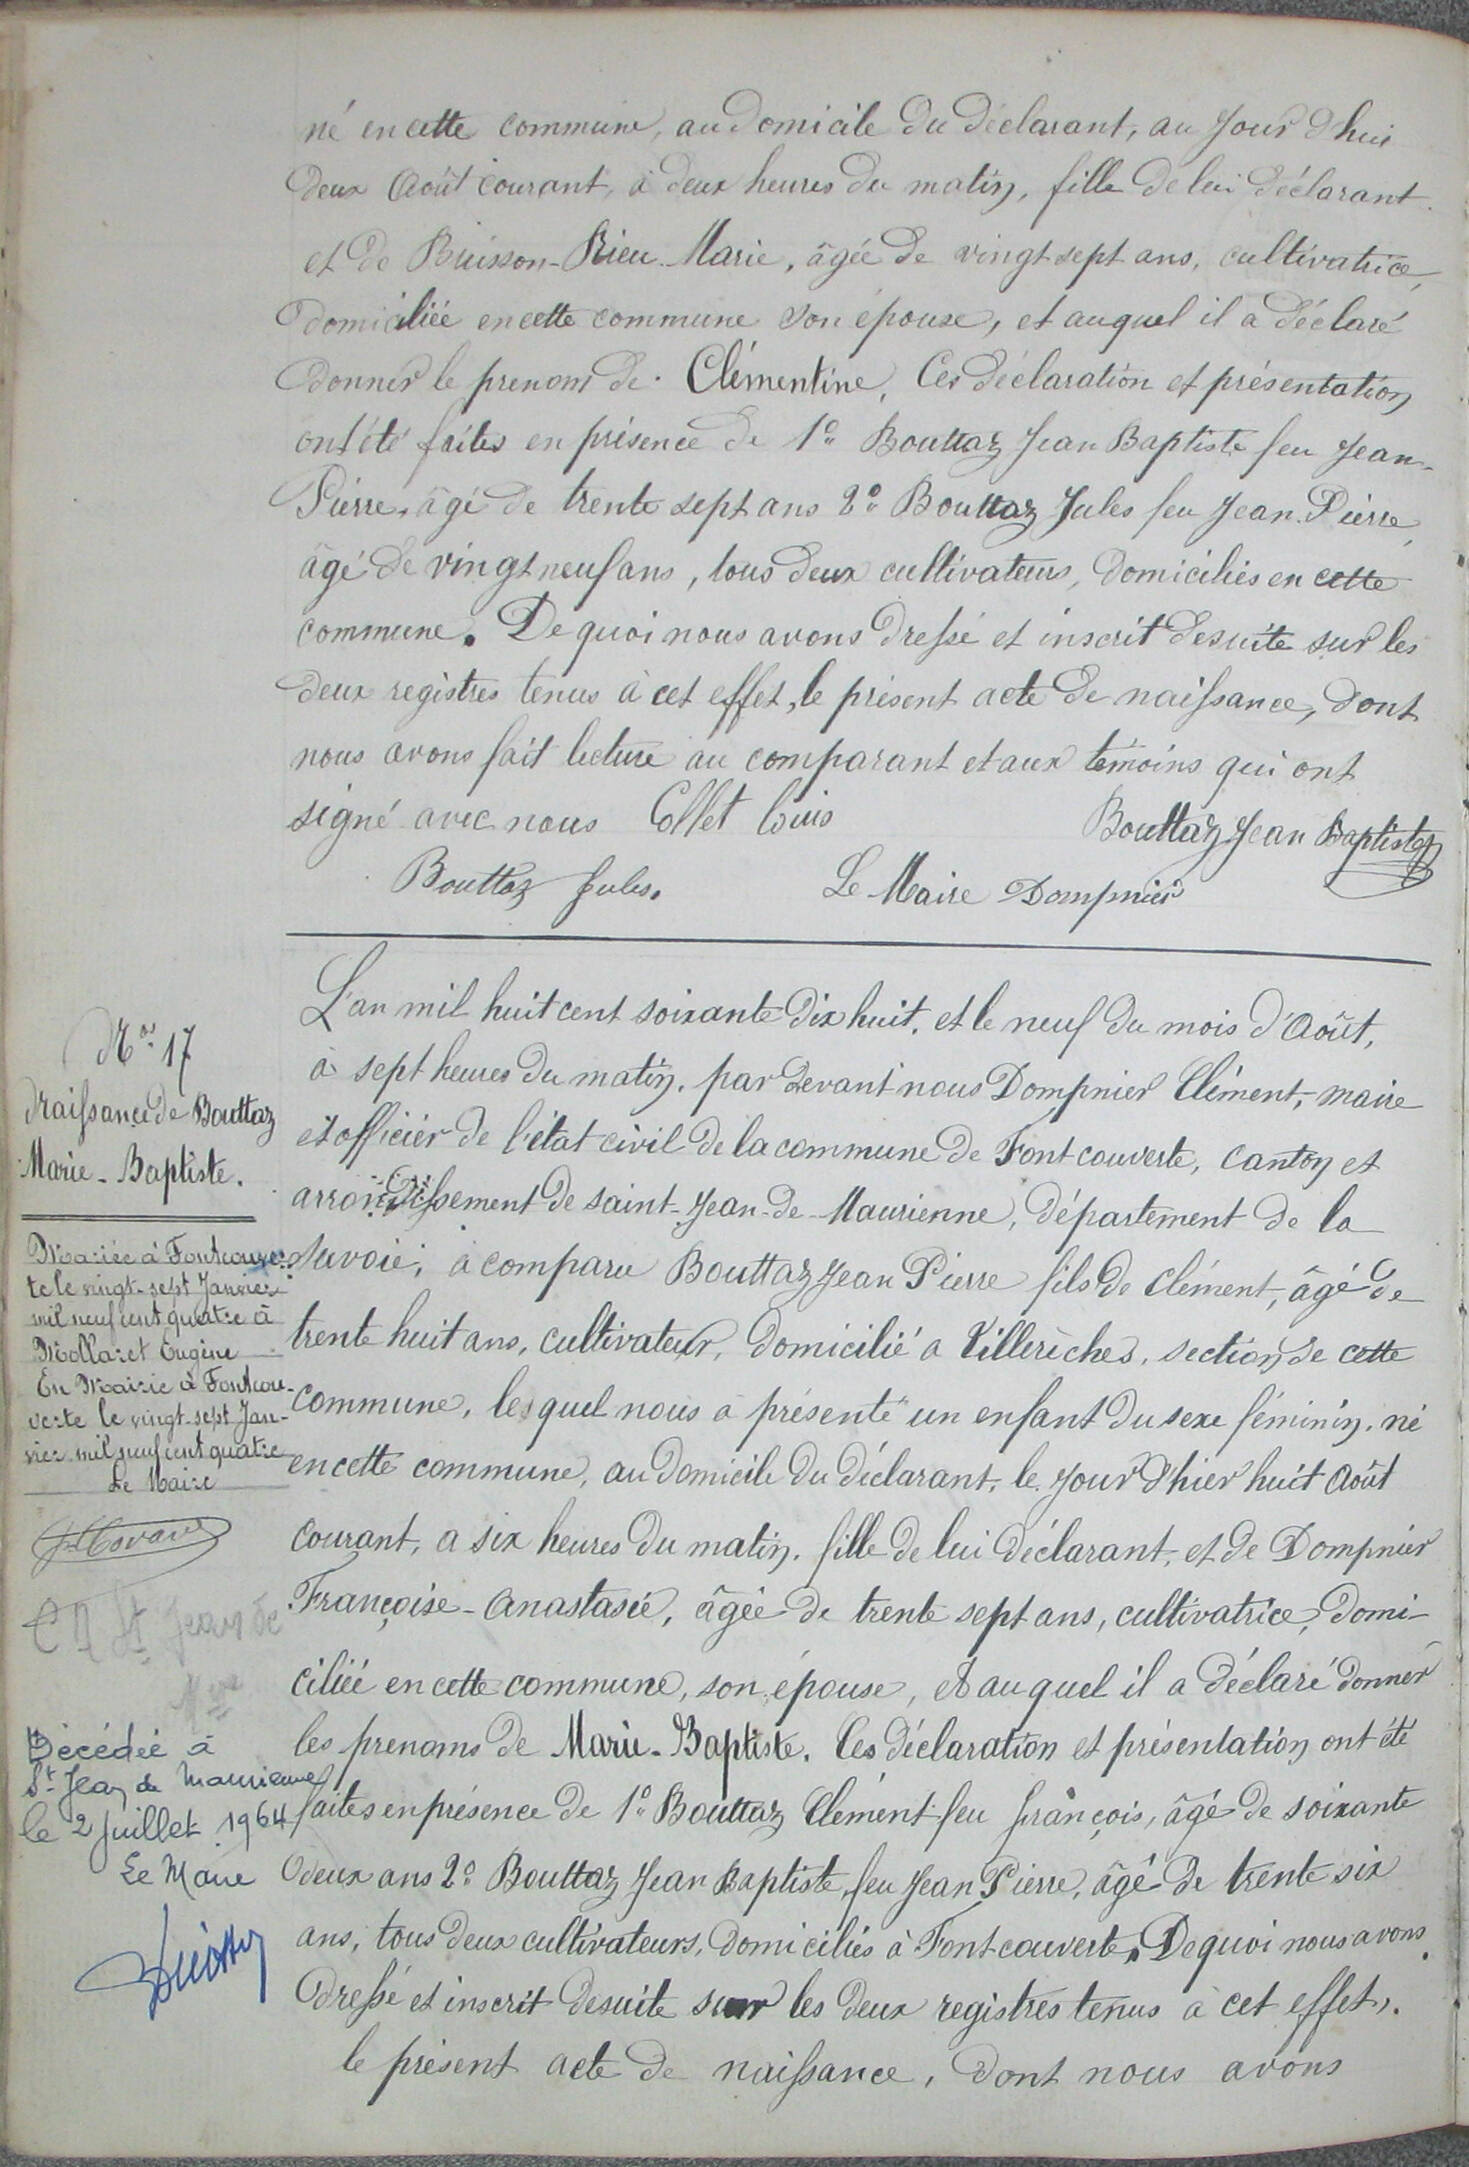 né en cette commune, au domicile du déclarant, au jour d'hui
deux Août courant, à deux heures du matin, fille de lui déclarant
et de Buisson-Rieu Marie, âgée de vingt sept ans, cultivatrice,
domiciliée en cette commune son épouse, et auquel il a déclaré
donner le prenom de Clémentine. Ces déclaration et présentation
ont été faites en présence de 1º Bouttaz Jean Baptiste feu Jean-
Pierre, âgé de trente sept ans 2º Bouttaz Jules feu Jean Pierre,
âgé de vingt neuf ans, tous deux cultivateurs, domiciliés en cette
commune. De quoi nous avons dressé et inscrit desuite sur les
deux registres tenus à cet effet, le présent acte de naissance, dont
nous avons fait lecture au comparant et aux témoins qui ont
signé avec nous Collet Louis
Bouttaz Jean Baptiste
Bouttaz Jules.
Le Maire Dompnier
Nº 17
Naissance de Bouttaz
Marie-Baptiste.
Mariée à Fontcouver-
te le vingt-sept Janvier
mil neuf cent quatre à
Mollaret Eugène
En Mairie à Fontcou-
verte le vingt-sept Jan-
vier mil neuf cent quatre
Le Maire
St Jean de
Mne
Décédée à
St Jean de Maurienne
le 2 Juillet 1964
Le Maire
L'an mil huit cent soixante dix huit, et le neuf du mois d'Août,
à sept heures du matin, par devant nous Dompnier Clément, maire
et officier de l'état civil de la commune de Fontcouverte, canton et
arrondissement de saint-Jean-de-Maurienne, département de la
Savoie, à comparu Bouttaz Jean Pierre fils de Clément, âgé de
trente huit ans, cultivateur, domicilié a Villerèches, section de cette
commune, lesquel nous a présenté un enfant du sexe féminin, né
en cette commune, au domicile du déclarant, le jour d'hier huit Août
courant, a six heures du matin, fille de lui déclarant, et de Dompnier
Françoise-Anastasie, âgée de trente sept ans, cultivatrice, domi-
ciliée en cette commune, son épouse, et auquel il a déclaré donner
les prenoms de Marie-Baptiste. Ces déclaration et présentation ont été
faites en présence de 1º Bouttaz Clément feu françois, âgé de soixante
deux ans 2º Bouttaz Jean Baptiste feu Jean Pierre, âgé de trente six
ans, tous deux cultivateurs, domiciliés à Fontcouverte. De quoi nous avons
dressé et inscrit desuite sur les deux registres tenus à cet effet,
le présent acte de naissance, dont nous avons